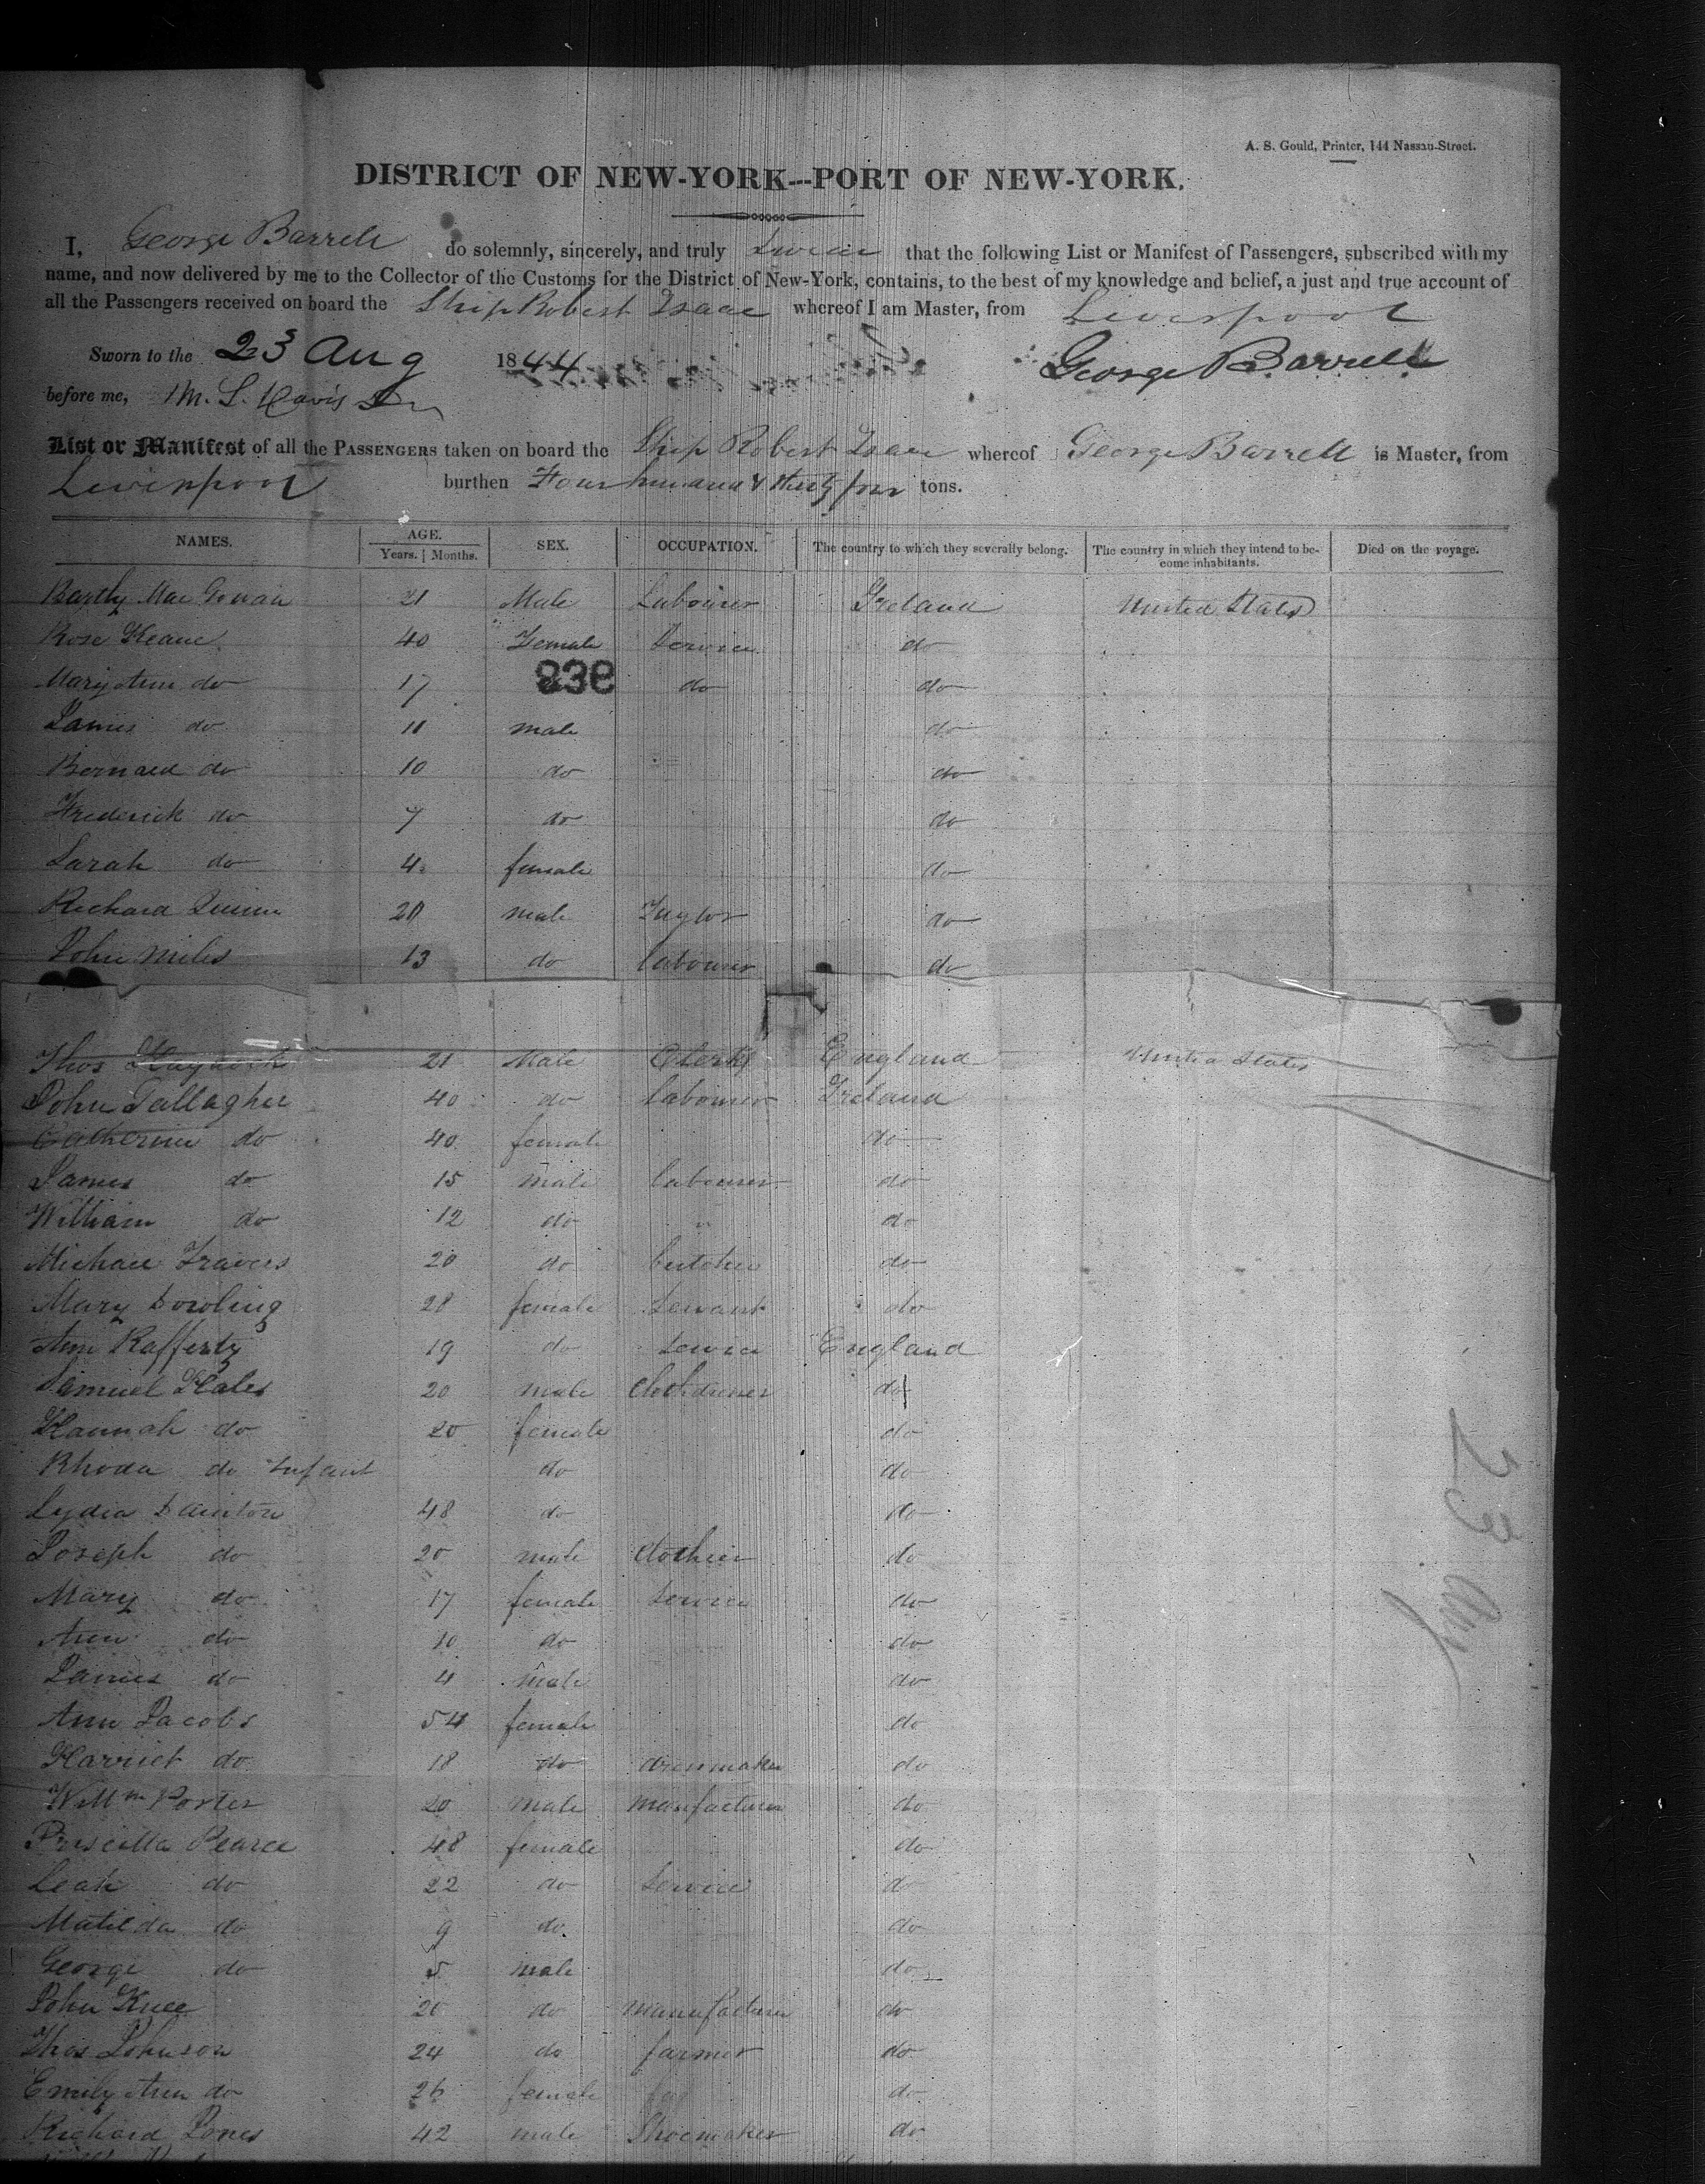 A. S. Gould, Printer, 144 Nassau-Street.
DISTRICT OF NEW-YORK---PORT OF NEW-YORK.
I, George Barrell do solemnly, sincerely, and truly Swear that the following List or Manifest of Passengers, subscribed with my
name, and now delivered by me to the Collector of the Customs for the District of New-York, contains, to the best of my knowledge and belief, a just and true account of
all the Passengers received on board the Ship Robert Isaac whereof I am Master, from Liverpool
Sworn to the 23 Aug 1844 George Barrell
before me, M. L. Davis
List or Manifest of all the PASSENGERS taken on board the Ship Robert Isaac whereof George Barrell is Master, from
Liverpool burthen Four hundred & thirty four tons.
NAMES. AGE. SEX. OCCUPATION. The country to which they severally belong. The country in which they intend to be- Died on the voyage.
Years. Months. come inhabitants.
Bartly Mac Gowan 21 Male Labourer Ireland United States
Rose Keane 40 Female Service do
838
Mary Ann do 17 do do
James do 11 male do
Bernard do 10 do do
Frederick do 7 do do
Sarah do 4 female do
Richard Quinn 20 male Taylor do
John Miles 13 do labourer do
Thos 21 Male Clerk England United States
John Gallagher 40 do labourer Ireland
Catherine do 40 female do
James do 15 male labourer do
William do 12 do " do
Michael Travers 20 do butcher do
Mary Dowling 28 female Servant do
Ann Rafferty 19 do Service England
Samuel Hales 20 male do
Hannah do 20 female do
Rhoda do Infant do do
Lydia Dainton 48 do do
Joseph do 20 male Clothier do
Mary do 17 female Service do
Ann do 10 do do
James do 4 male do
Ann Jacobs 54 female do
Harriet do 18 do dressmaker do
Willm Porter 20 male manufacturer do
Priscilla Pearce 48 female do
Leah do 22 do Service do
Matilda do 9 do do
George do 5 male do
John Knee 20 do manufacturer do
Thos Johnson 24 do farmer do
Emily Ann do 26 female do
Richard Jones 42 male Shoemaker do
23 Aug